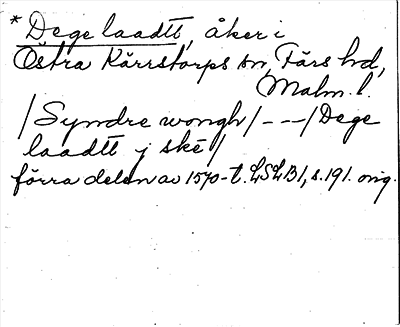 * Dege laadtt, åker i
Östra Kärrstorps sn, Färs hd,
Malm. l.
/Syndre wongh/ - - - /Dege
laadtt j ske/
förra delen av 1570-t. LSLB1, s. 191. orig.